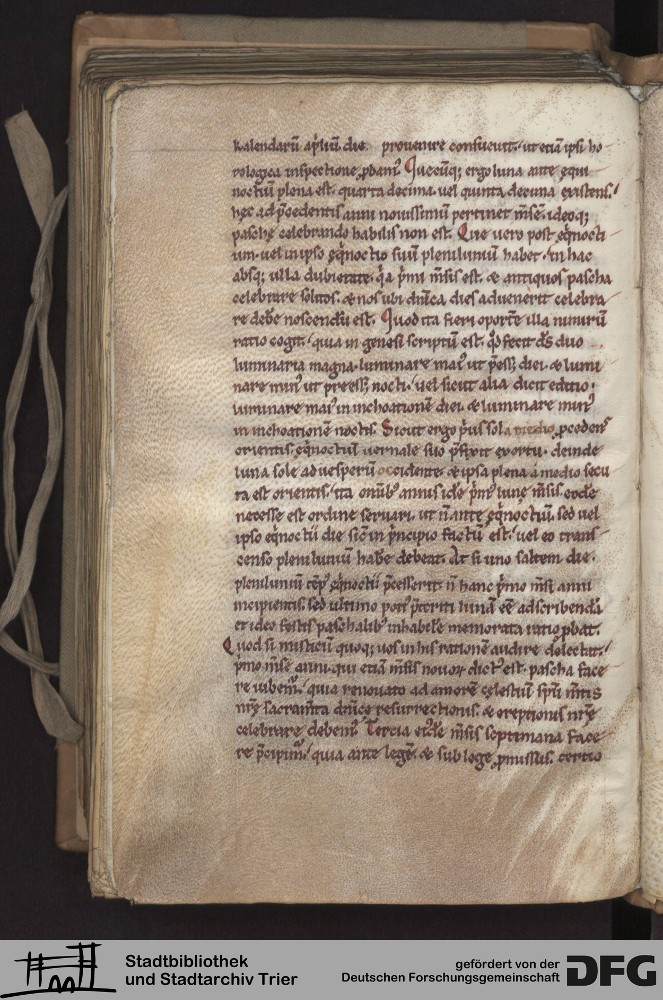 kalendarū ap̄liū die. provenire consuevit. ut etiā ipsi ho
rologica inspectione ꝓbam᷒. Quecūq; ergo luna ante equi
noctiū plena est. quarta decima. vel quinta decuna existens.
hęc ad p̄cedentis anni novissimū pertinet m̄sē. ideoq;
paschę celebrando habilis non est. Que vero post eq̄nocti
um. vel in ipso eq̄noctio suū plenilunīu habet. in hac
absq; ulla dubietate. q̄a p̄mi m̄sis est. & antiquos pascha
celebrare solitos. & nos ubi dn̄ica dies advenerit celebra
re debe᷒ noscendū est. Quod ita fieri oport&e illa nimirū
ratio cogit. quia in genesi scriptū est. qd̄ fecit ds̄ duo
luminaria magna. luminare mai᷒ ut p̄ess& diei. & lumi
nare min᷒ ut preess& nocti. vel sicut alia dicit editio.
luminare mai᷒ in inchoationē diei. & luminare min᷒
in inchoationē noctis. Sicut ergo p̄us sol a medio ꝓcedens
orientis. eq̄noctiū vernale suo p̄fixit exortu. deinde
luna sole ad vesperū occidente. & ipsa plena a medio secu
ta est orientis. ita om̄ib᷒ annis idē p̄m᷒ lunę m̄sis. eodē
necesse est ordine servari. ut n̄ ante eq̄noctiū. sed vel
ipso eq̄noctii die sic̄ in p̄ncipio factū est. vel eo trans
censo plenilunīu habe᷒ debeat. At si uno saltem die.
plenilunīu tēp᷒ eq̄noctii p̄cesserit. n̄ hanc p̄mo m̄si anni
incipientis. sed ultimo poti᷒ p̄teriti lunā eē adscribendā
et ideo festis paschalib᷒ inhabilē memorata ratio ꝓbat.
Quod si misticū quoq; vos in his rationē audire delectat.
p̄mo m̄se anni. qui etiā m̄sis novoꝝ dict᷒ est. pascha face
re iubem᷒. quia renovato ad amorē celestiū sp̄u m̄tis
nr̄ę sacram̄ta dn̄icę resurrectionis. & ereptionis nr̄ę
celebrare debem᷒. Tercia ei᷒dē m̄sis septimana face
re p̄cipim᷒. quia ante legē. & sub lege ꝓmissus. tercio
Stadtbibliothek
und Stadtarchiv Trier
gefördert von der
Deutschen Forschungsgemeinschaft
DFG